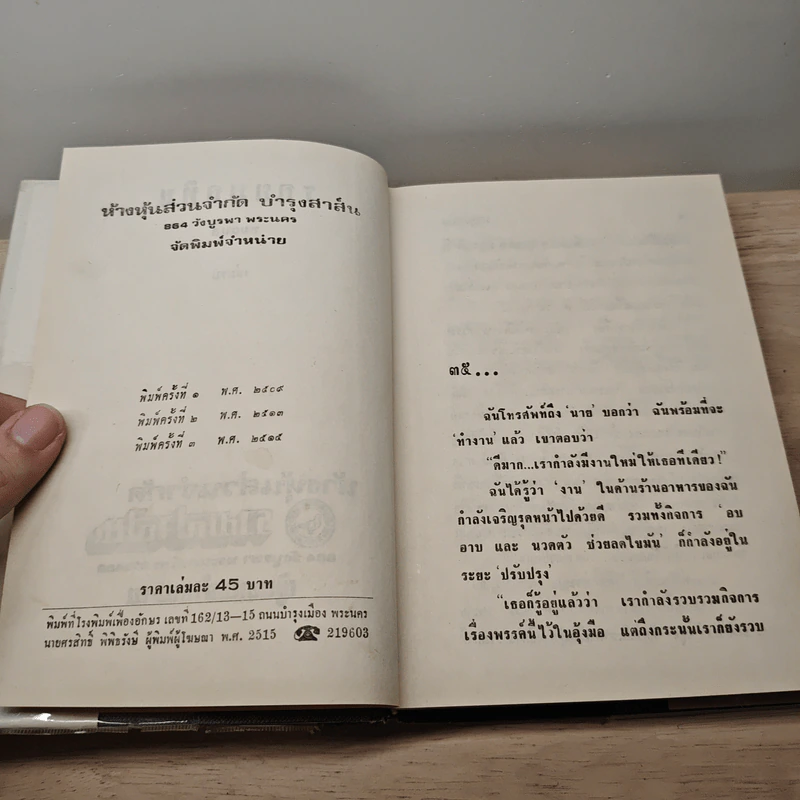 ห้างหุ้นส่วนจำกัด บำรุงสาส์น
864 วังบูรพา พระนคร
จัดพิมพ์จำหน่าย
พิมพ์ครั้งที่ ๑ พ.ศ. ๒๕๐๙
พิมพ์ครั้งที่ ๒ พ.ศ. ๒๕๑๓
พิมพ์ครั้งที่ ๓ พ.ศ. ๒๕๑๕
ราคาเล่มละ 45 บาท
พิมพ์ที่โรงพิมพ์เฟื่องอักษร เลขที่ 162/13—15 ถนนบำรุงเมือง พระนคร
นายศรสิทธิ์ พิพิธรังษี ผู้พิมพ์ผู้โฆษณา พ.ศ. 2515 ☎ 219603
๓๕...
ฉันโทรสัพท์ถึง 'นาย' บอกว่า ฉันพร้อมที่จะ
'ทำงาน' แล้ว เขาตอบว่า
"ดีมาก...เรากำลังมีงานใหม่ให้เธอทีเดียว!"
ฉันได้รู้ว่า 'งาน' ในด้านร้านอาหารของฉัน
กำลังเจริญรุดหน้าไปด้วยดี รวมทั้งกิจการ 'อบ
อาบ และ นวดตัว ช่วยลดไขมัน' ก็กำลังอยู่ใน
ระยะ 'ปรับปรุง'
"เธอก็รู้อยู่แล้วว่า เรากำลังรวบรวมกิจการ
เรื่องพรรค์นี้ไว้ในอุ้งมือ แต่ถึงกระนั้นเราก็ยังรวบ